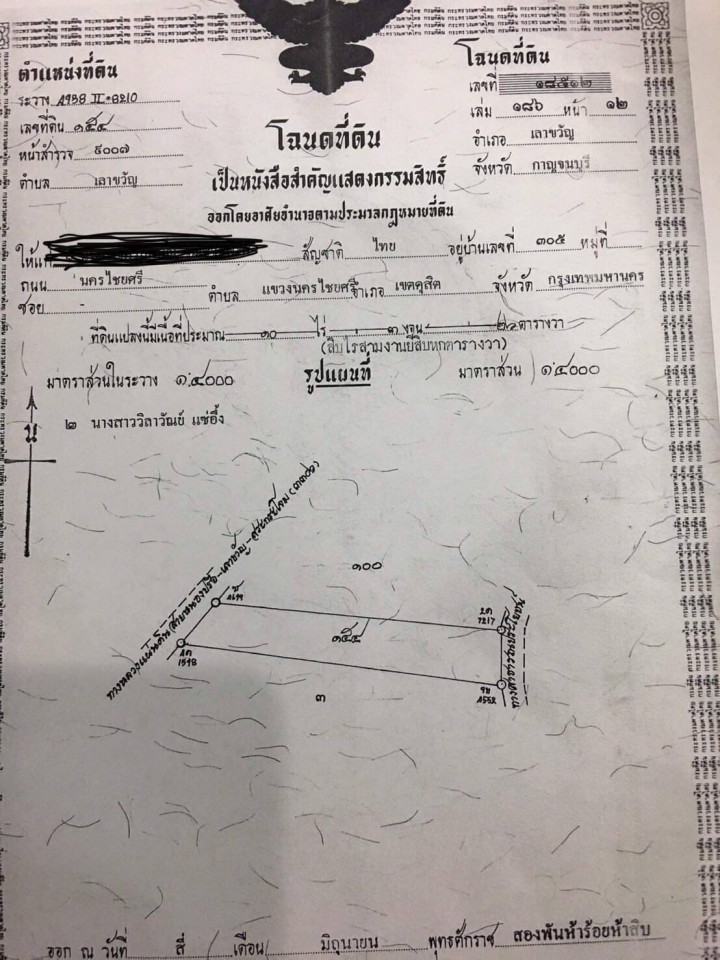 ตำแหน่งที่ดิน
ระวาง 4938 II 8210
เลขที่ดิน ๑๕๔
หน้าสำรวจ ๙๐๐๗
ตำบล เลาขวัญ
โฉนดที่ดิน
เลขที่ ๑๘๕๑๒
เล่ม ๑๘๖ หน้า ๑๒
อำเภอ เลาขวัญ
จังหวัด กาญจนบุรี
โฉนดที่ดิน
เป็นหนังสือสำคัญแสดงกรรมสิทธิ์
ออกโดยอาศัยอำนาจตามประมวลกฎหมายที่ดิน
ให้แก่ สัญชาติ ไทย อยู่บ้านเลขที่ ๓๐๕ หมู่ที่
ถนน นครไชยศรี
ซอย - ตำบล แขวงนครไชยศรี อำเภอ เขตดุสิต จังหวัด กรุงเทพมหานคร
ที่ดินแปลงนี้มีเนื้อที่ประมาณ ๑๐ ไร่ ๓ งาน ๒๖ ตารางวา
(สิบไร่สามงานยี่สิบหกตารางวา)
มาตราส่วนในระวาง ๑:๔๐๐๐ รูปแผนที่ มาตราส่วน ๑:๔๐๐๐
น
๒ นางสาววิลาวัณย์ แซ่อึ้ง
๑๐๐
๑๕๔
7217
1598
๓
ทางสาธารณประโยชน์
ออก ณ วันที่ สี่ เดือน มิถุนายน พุทธศักราช สองพันห้าร้อยห้าสิบ